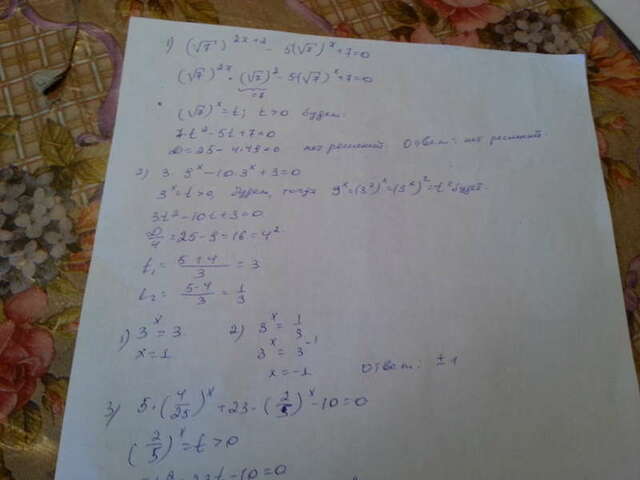 1) (√7)^(2x+2) - 5(√7)^x + 7 = 0
(√7)^(2x) · (√7)^2 - 5(√7)^x + 7 = 0
= 7
(√7)^x = t; t > 0 будет.
7t^2 - 5t + 7 = 0
D = 25 - 4·49 < 0 нет решений. Ответ: нет решений.
2) 3·9^x - 10·3^x + 3 = 0
3^x = t > 0, будет, тогда 9^x = (3^2)^x = (3^x)^2 = t^2 будет.
3t^2 - 10t + 3 = 0
D/4 = 25 - 9 = 16 = 4^2
t₁ = (5+4)/3 = 3
t₂ = (5-4)/3 = 1/3
1) 3^x = 3 2) 3^x = 1/3
x = 1 3^x = 3^(-1)
x = -1 Ответ: ±1
3) 5·(4/25)^x + 23·(2/5)^x - 10 = 0
(2/5)^x = t > 0
t - 10 = 0